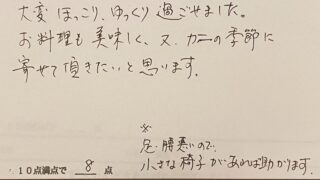 大変ほっこり、ゆっくり過ごせました。
お料理も美味しく、又、カニの季節に
寄せて頂きたいと思います。
※
足、腰悪いので、
小さな椅子があれば助かります。
10点満点で 8 点